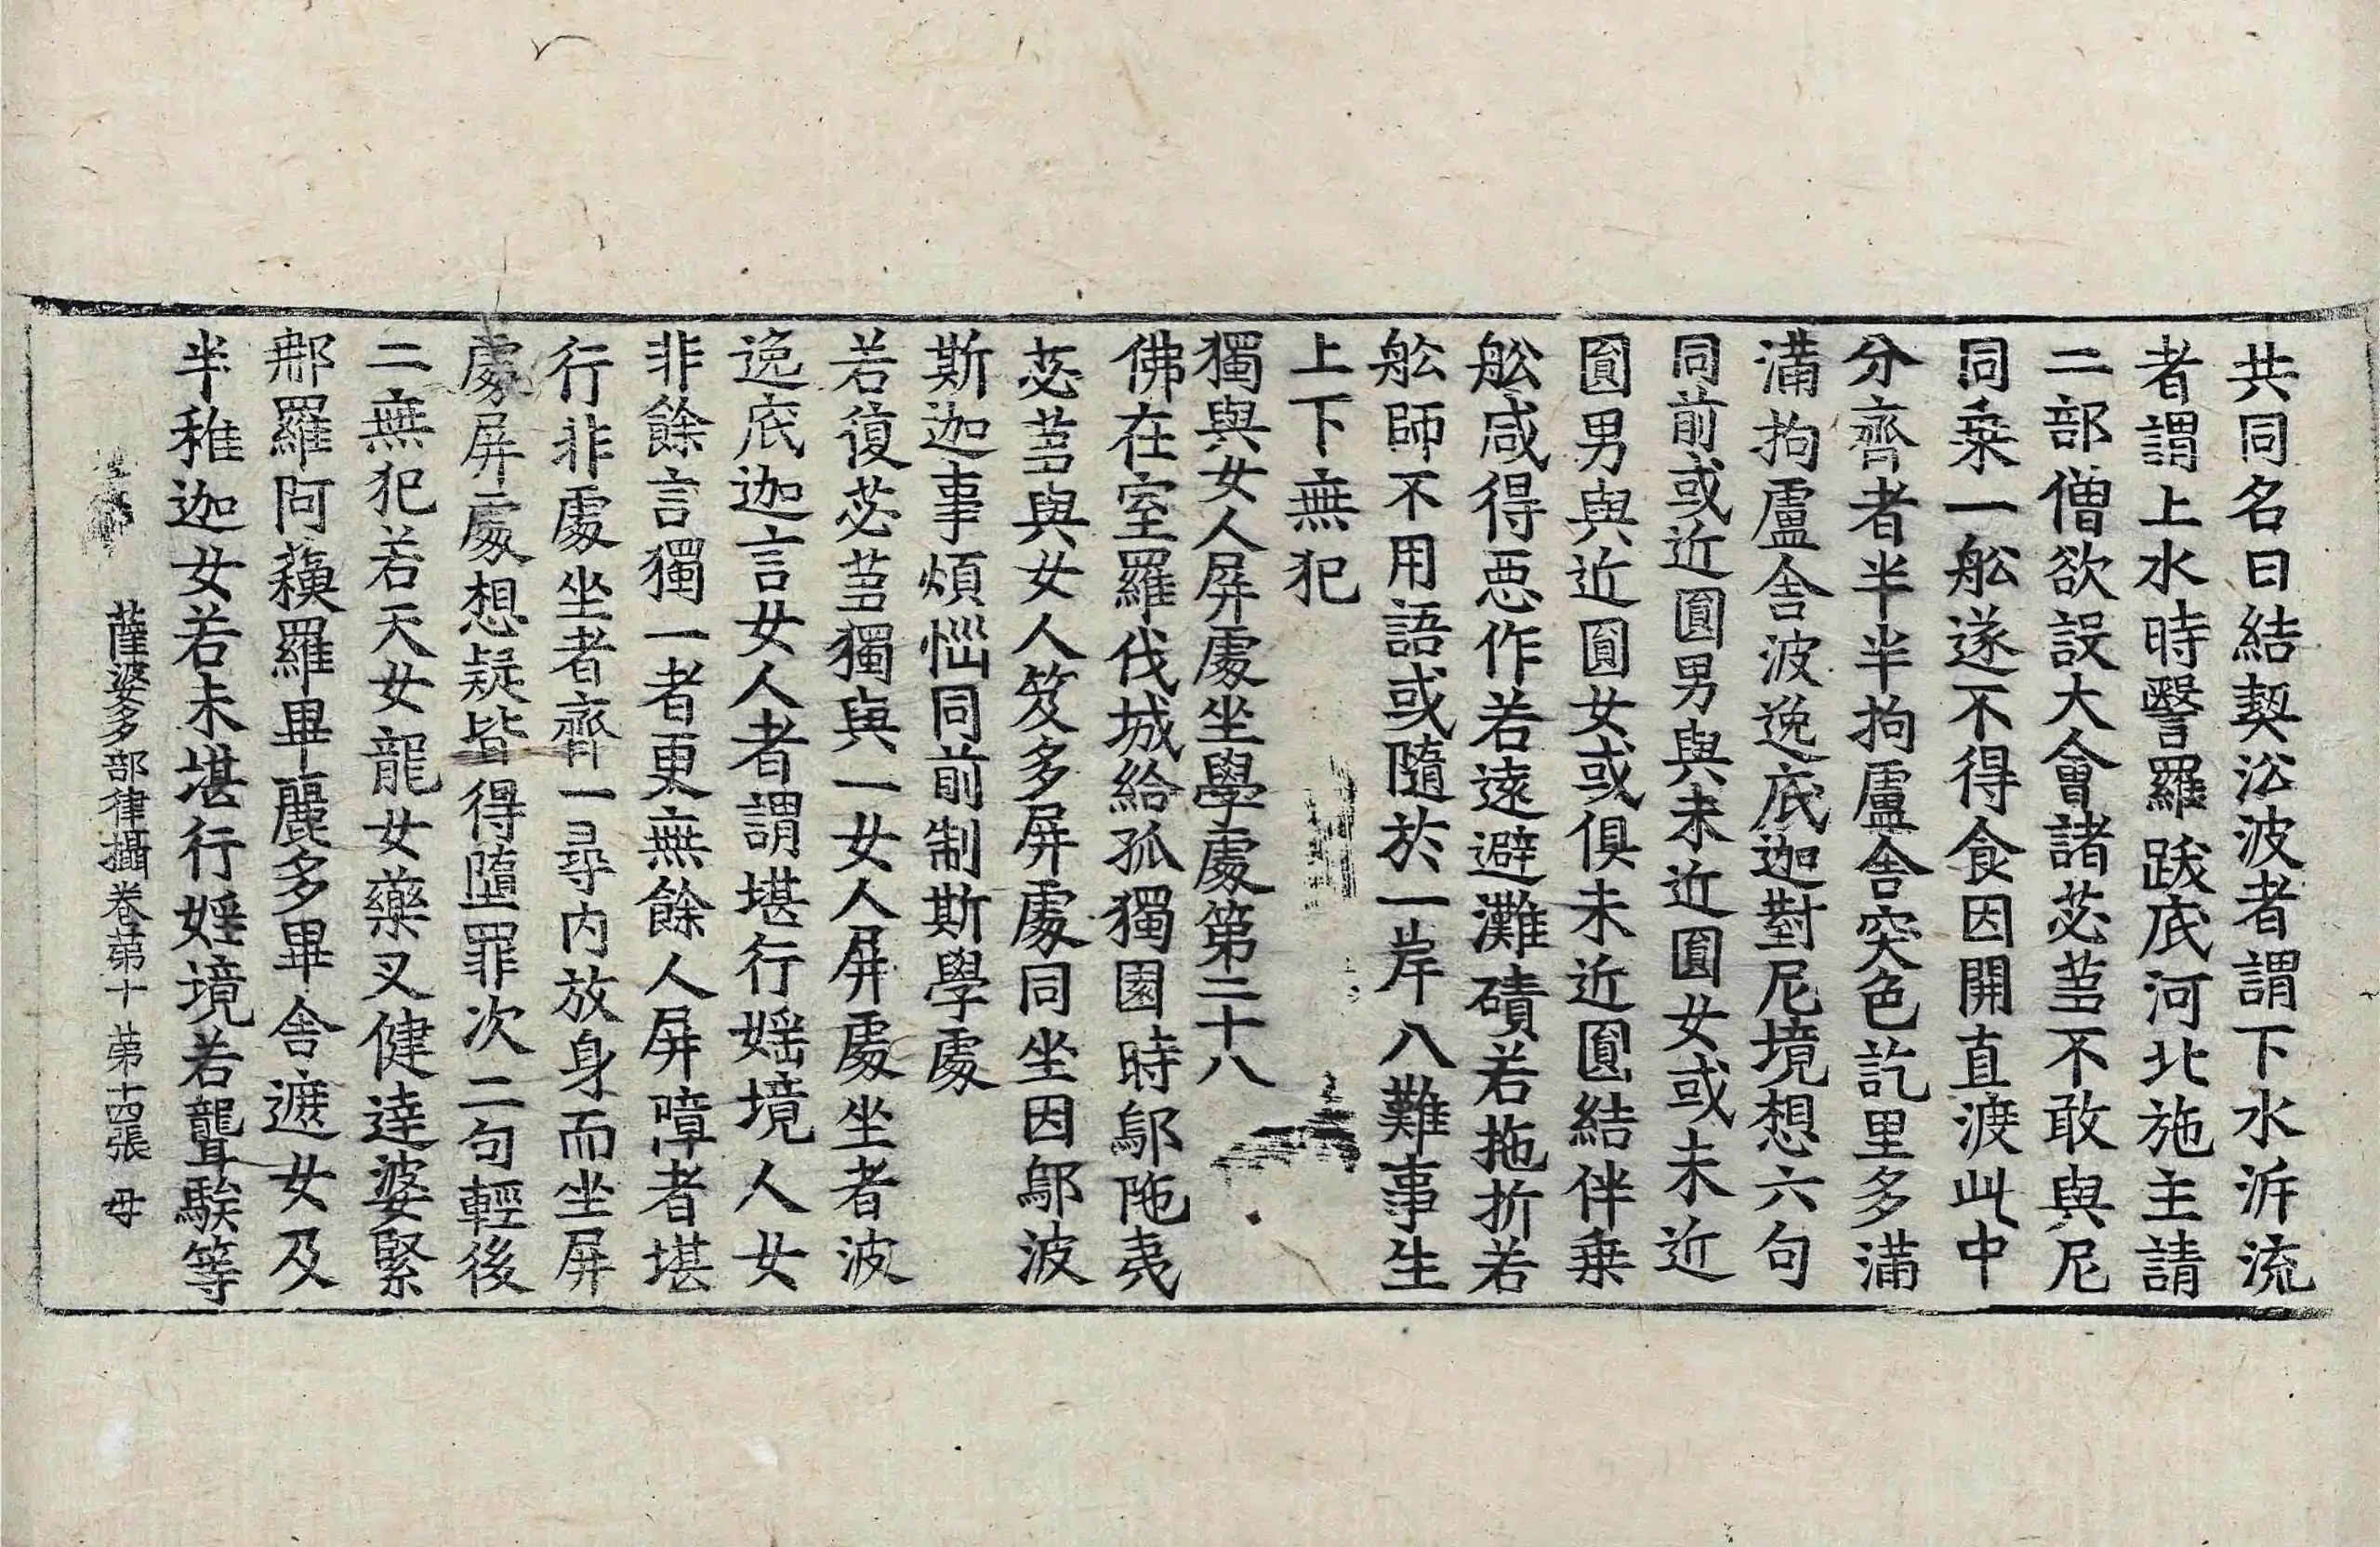 共同名曰結契㳂波者謂下水泝流
者謂上水時翳羅跋底河北施主請
二部僧欲設大會諸苾芻不敢與尼
同乗一舩遂不得食因開直渡此中
分齊者半半拘盧舎突色訖里多滿
滿拘盧舎波逸底迦對尼境想六句
同前或近圓男與未近圓女或未近
圓男與近圓女或俱未近圓結伴乗
舩咸得惡作若遠避灘磧若拖折若
舩師不用語或隨於一岸八難事生
上下無犯
獨與女人屏處坐學處第二十八
佛在室羅伐城給孤獨園時鄔陁夷
苾芻與女人笈多屏處同坐因鄔波
斯迦事煩惱同前制斯學處
若復苾芻獨與一女人屏處坐者波
逸底迦言女人者謂堪行婬境人女
非餘言獨一者更無餘人屏障者堪
行非處坐者齊一尋内放身而坐屏
處屏處想疑皆得墮罪次二句輕後
二無犯若天女龍女藥叉健達婆緊
那羅阿蘓羅畢麗多畢舎遮女及
半稚迦女若未堪行婬境若聾騃等
薩婆多部律攝卷第十 第十四張 母